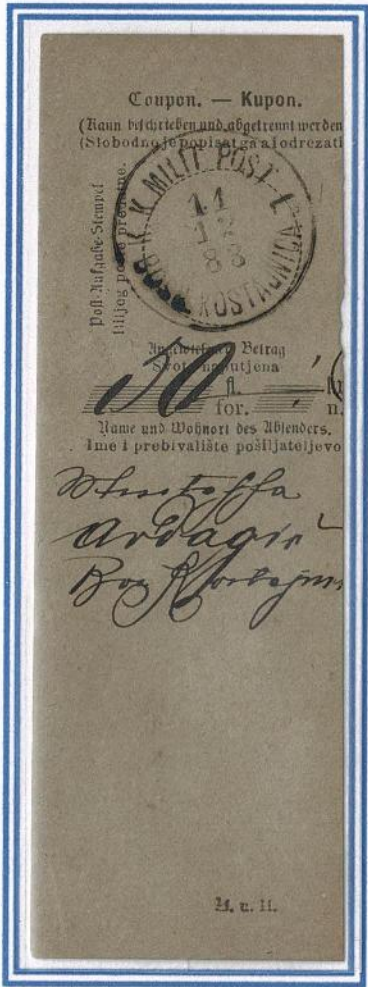 Coupon. — Kupon.
(Kann beschrieben und abgetrennt werden
(Slobodno je popisat ga a lodrezati
Post-Aufgabe-Stempel
Biljeg pošte predatne.
K. K. MILIT. POST L
BOSN. KOSTAJNICA
11
12
88
Angewiesener Betrag
Svota naputjena
50 fl.
for. n.
Name und Wohnort des Absenders.
Ime i prebivalište pošiljateljevo
Mustaffa
Ardagić
Bos Kostajni